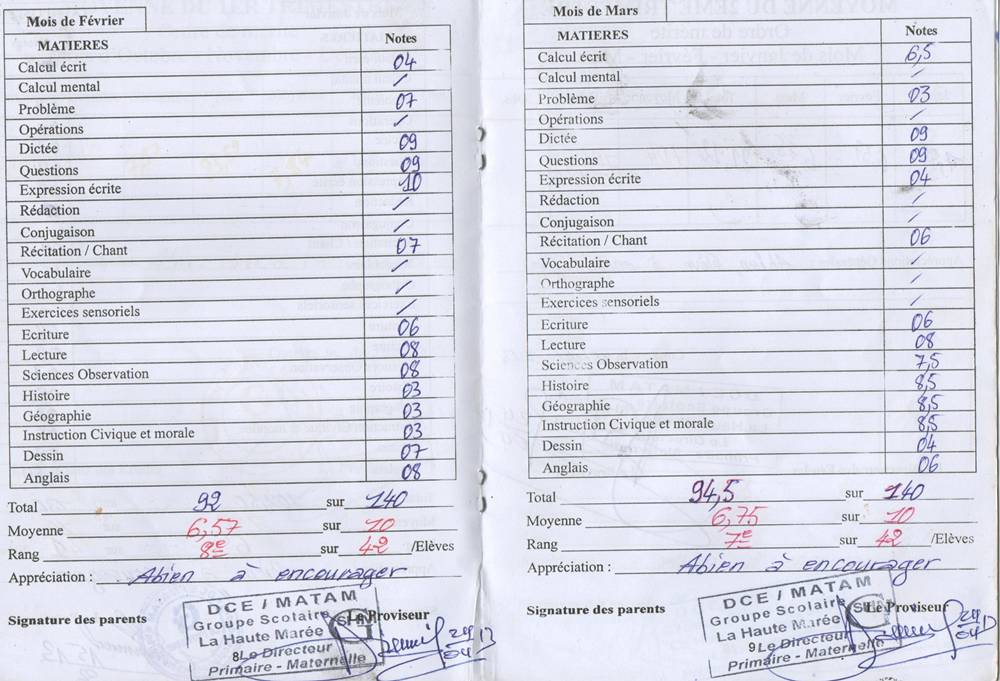 Mois de Février
MATIERES Notes
Calcul écrit 04
Calcul mental /
Problème 07
Opérations /
Dictée 09
Questions 09
Expression écrite 10
Rédaction /
Conjugaison /
Récitation / Chant 07
Vocabulaire /
Orthographe /
Exercices sensoriels /
Ecriture 06
Lecture 08
Sciences Observation 08
Histoire 03
Géographie 03
Instruction Civique et morale 03
Dessin 07
Anglais 08
Total 92 sur 140
Moyenne 6,57 sur 10
Rang 8e sur 42 /Elèves
Appréciation : Abien à encourager
Signature des parents Le Proviseur
DCE / MATAM
Groupe Scolaire
La Haute Marée
8Le Directeur
Primaire - Maternelle
Mois de Mars
MATIERES Notes
Calcul écrit 6,5
Calcul mental /
Problème 03
Opérations /
Dictée 09
Questions 09
Expression écrite 04
Rédaction /
Conjugaison /
Récitation / Chant 06
Vocabulaire /
Orthographe /
Exercices sensoriels /
Ecriture 06
Lecture 08
Sciences Observation 7,5
Histoire 8,5
Géographie 8,5
Instruction Civique et morale 8,5
Dessin 04
Anglais 06
Total 94,5 sur 140
Moyenne 6,75 sur 10
Rang 7e sur 42 /Elèves
Appréciation : Abien à encourager
Signature des parents Le Proviseur
DCE / MATAM
Groupe Scolaire
La Haute Marée
9Le Directeur
Primaire - Maternelle